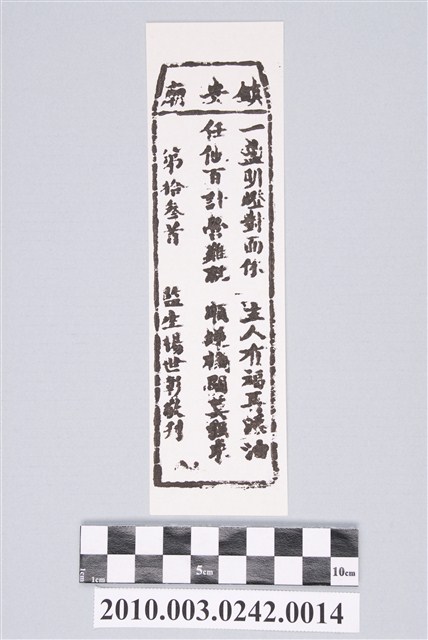 鎮安廟
一盞明燈對面係 生人有福再添油
任他百計營難 順 機關莫
第拾叁首 監生楊世 敬刊
1cm
1cm
5cm
10cm
2010.003.0242.0014